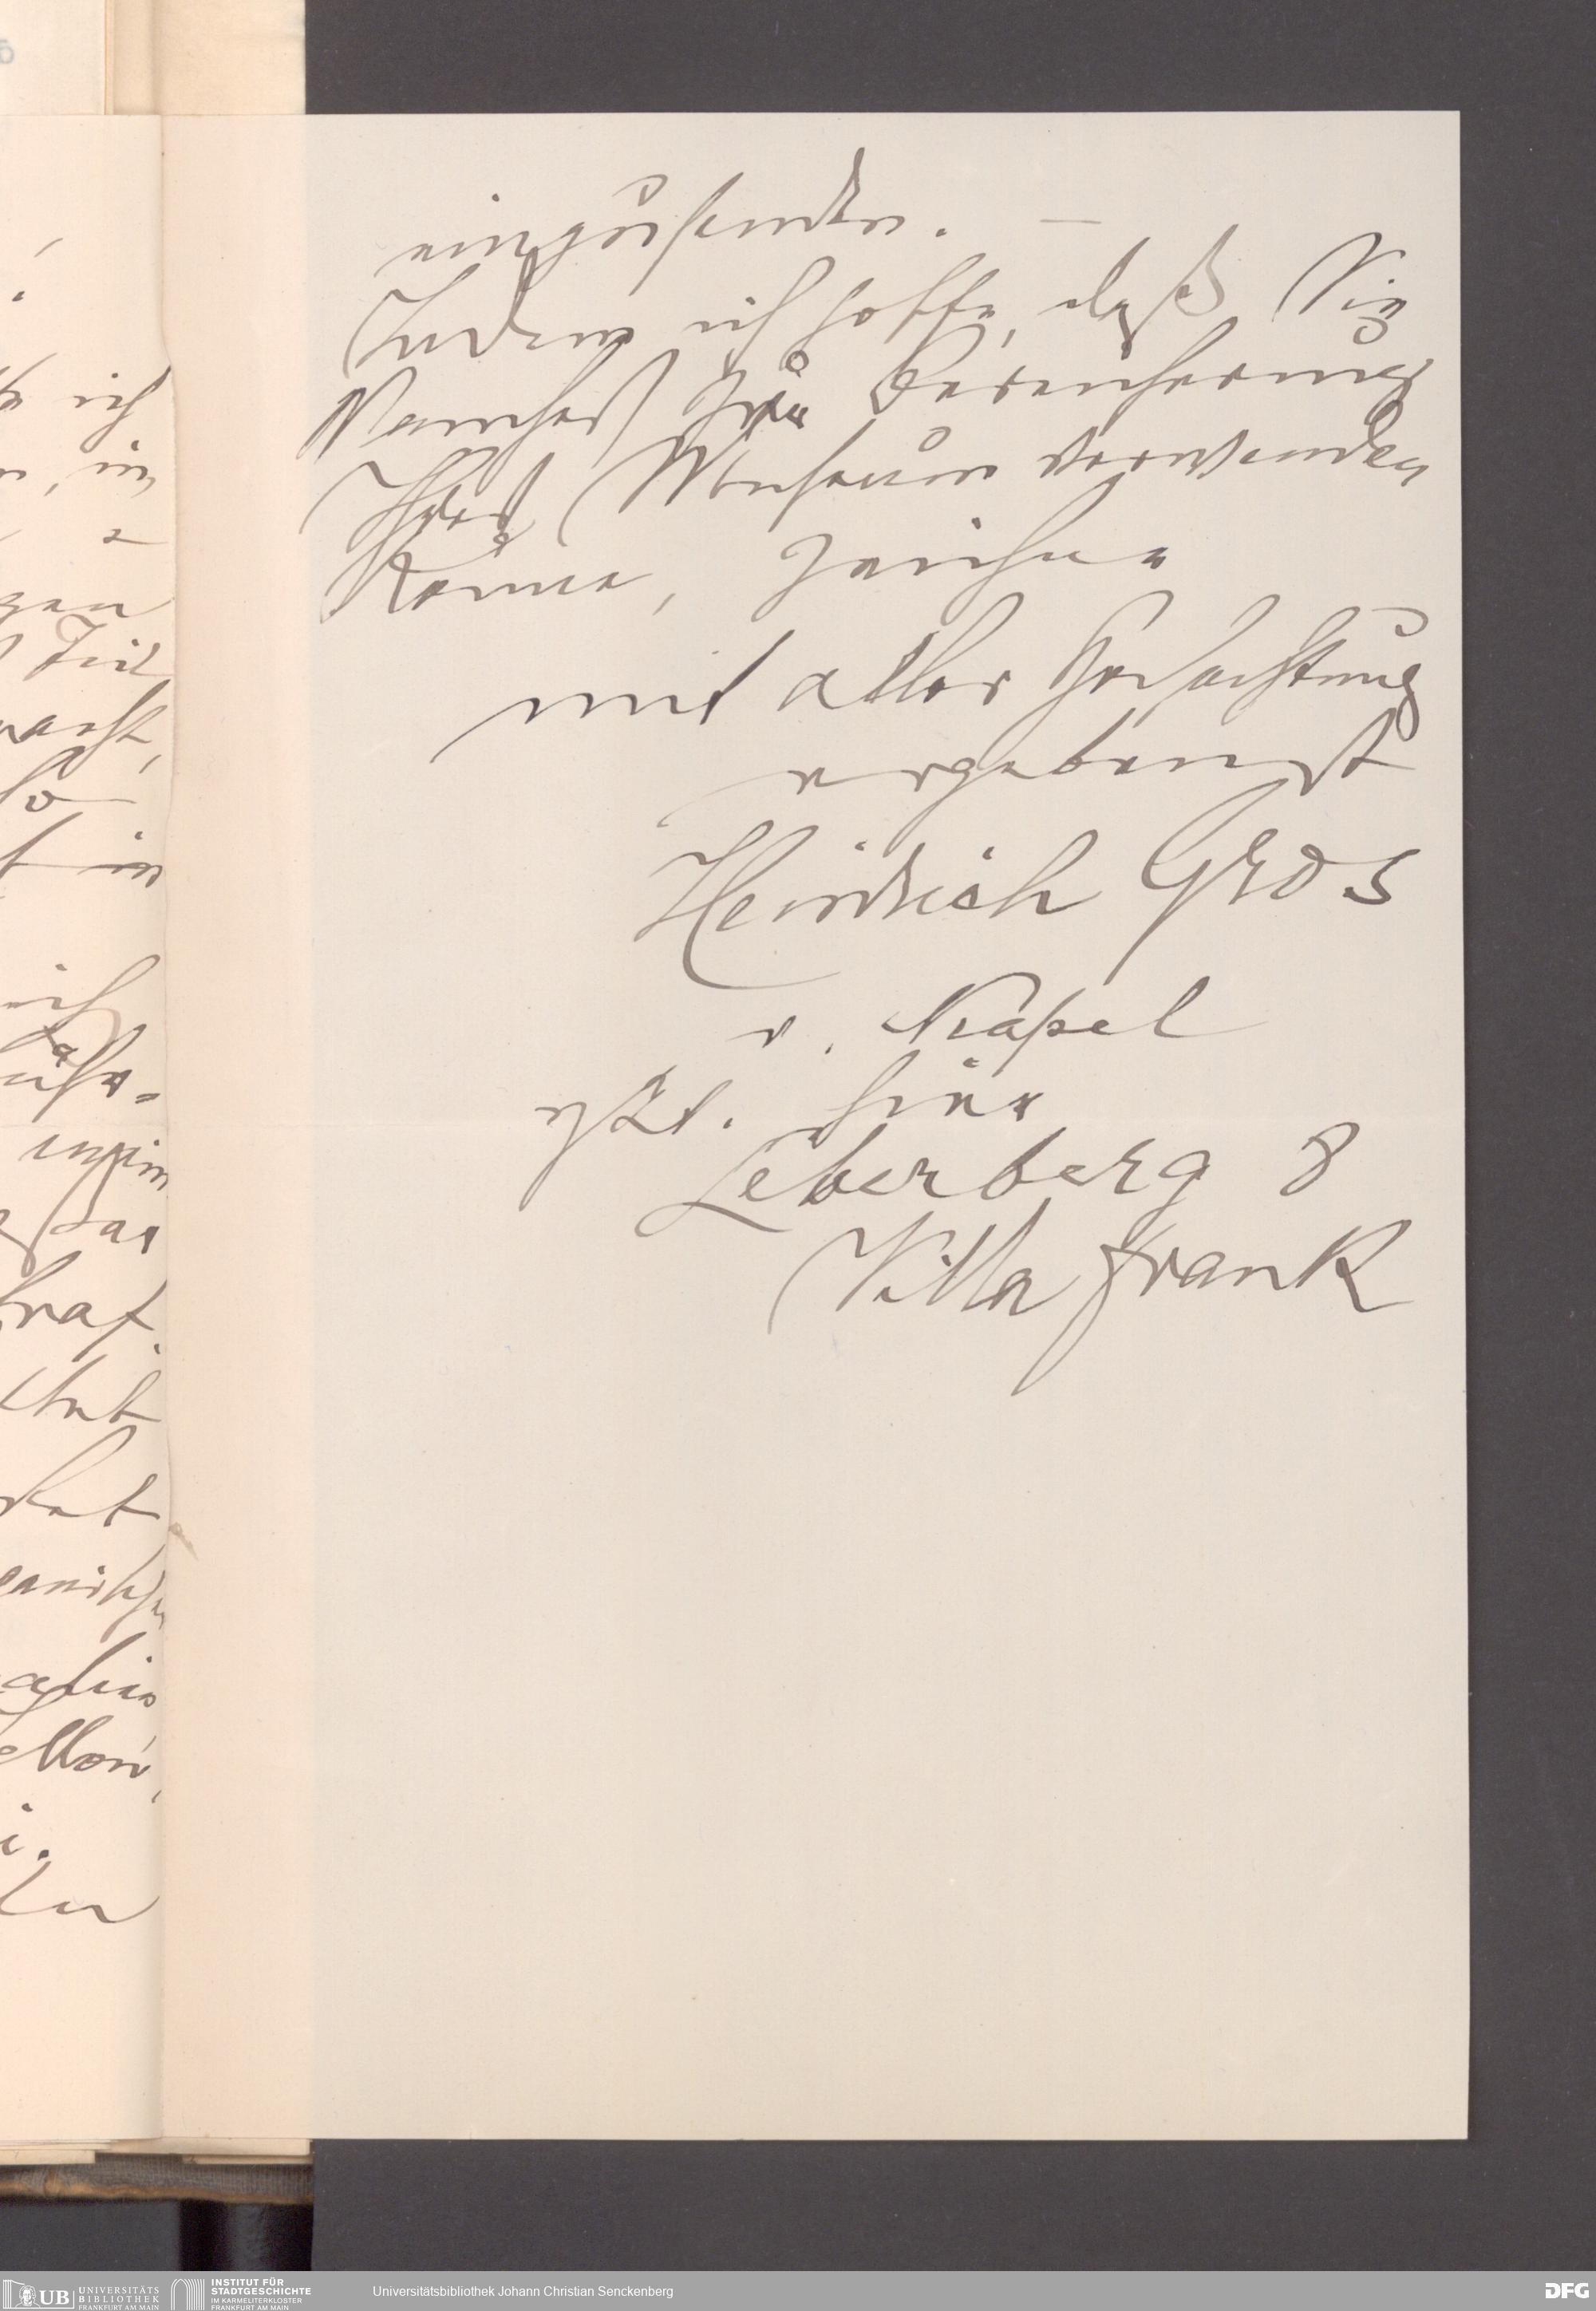 einzusenden. —
Indem ich hoffe, daß Sie
Manches zur Bereicherung
Ihres Museum verwenden
könne, zeichne
mit aller Hochachtung
ergebenst
Heinrich Gros
v. Neapel
jzt. hier
Leberberg 8
Villa Frank
ich
in
Teil
macht,
so
in
ich
das
hat
UB
UNIVERSITÄTS
BIBLIOTHEK
FRANKFURT AM MAIN
INSTITUT FÜR
STADTGESCHICHTE
IM KARMELITERKLOSTER
FRANKFURT AM MAIN
Universitätsbibliothek Johann Christian Senckenberg
DFG